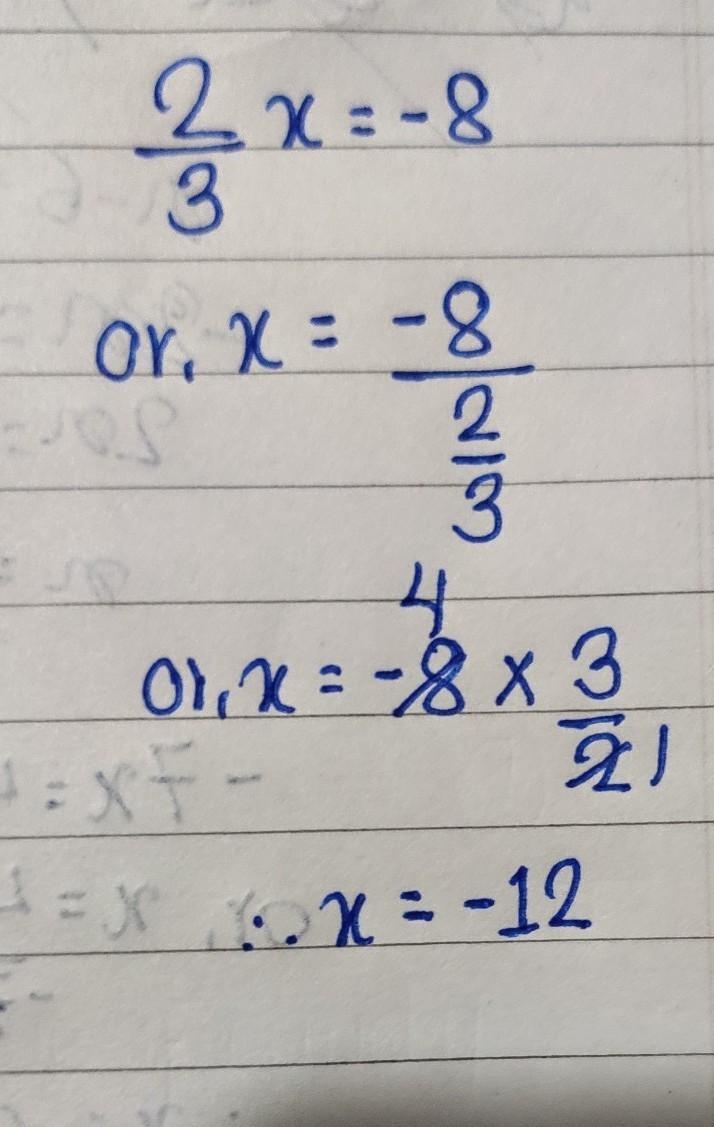 2/3 x = -8
or, x = -8/(2/3)
4
or, x = -8 × 3/2 1
∴ x = -12